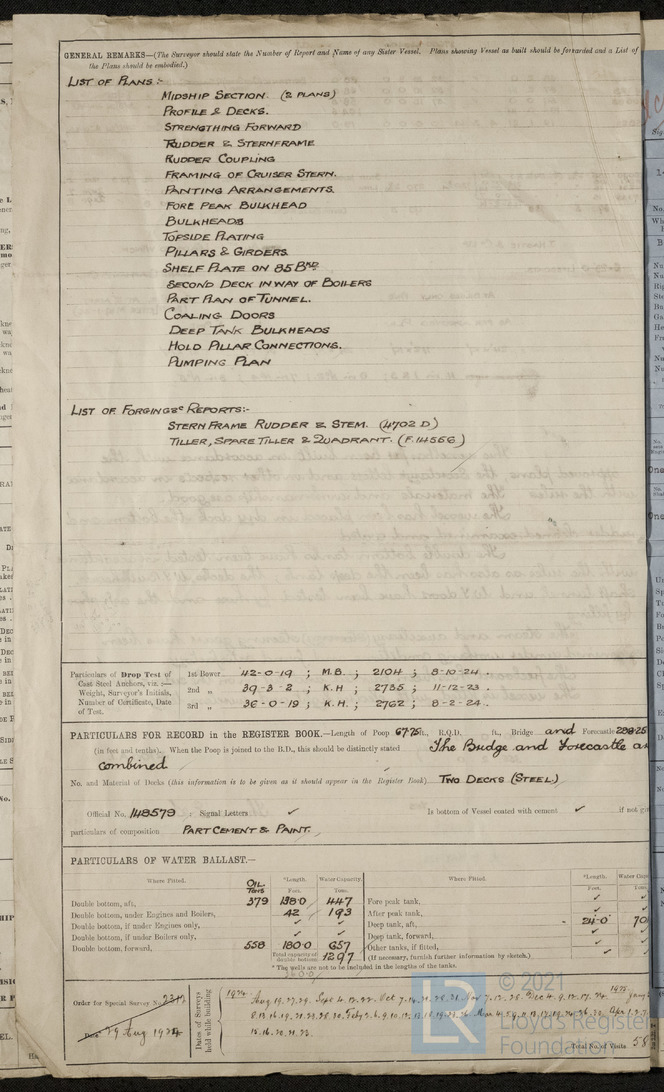 GENERAL REMARKS—(The Surveyor should state the Number of Report and Name of any Sister Vessel. Plans showing Vessel as built should be forwarded and a List of
the Plans should be embodied.)
LIST OF PLANS:-
MIDSHIP SECTION. (2 PLANS)
PROFILE & DECKS.
STRENGTHING FORWARD
RUDDER & STERNFRAME
RUDDER COUPLING
FRAMING OF CRUISER STERN.
PANTING ARRANGEMENTS.
FORE PEAK BULKHEAD
BULKHEADS
TOPSIDE PLATING
PILLARS & GIRDERS
SHELF PLATE ON 85 BHD
SECOND DECK IN WAY OF BOILERS
PART PLAN OF TUNNEL.
COALING DOORS
DEEP TANK BULKHEADS
HOLD PILLAR CONNECTIONS.
PUMPING PLAN
LIST OF FORGING &c REPORTS:-
STERN FRAME RUDDER & STEM. (4702 D)
TILLER, SPARE TILLER & QUADRANT. (F.14556)
Particulars of Drop Test of
Cast Steel Anchors, viz.:—
Weight, Surveyor's Initials,
Number of Certificate, Date
of Test.
1st Bower 42-0-19 ; M.B. ; 2104 ; 8-10-24.
2nd „ 39-3-2 ; K.H ; 2735 ; 11-12-23.
3rd „ 36-0-19 ; K.H. ; 2762 ; 8-2-24.
PARTICULARS FOR RECORD in the REGISTER BOOK.—Length of Poop 67.75 ft., R.Q.D. ft., Bridge and Forecastle 288.25
(in feet and tenths). When the Poop is joined to the B.D., this should be distinctly stated The Bridge and Forecastle a
combined
No. and Material of Decks (this information is to be given as it should appear in the Register Book) TWO DECKS (STEEL)
Official No. 148579 ; Signal Letters ✓ Is bottom of Vessel coated with cement ✓ if not
particulars of composition PART CEMENT & PAINT.
PARTICULARS OF WATER BALLAST.—
Where Fitted. OIL TONS *Length. Feet. Water Capacity. Tons. Where Fitted. *Length. Feet. Water Tons.
Double bottom, aft, 379 138.0 447 Fore peak tank, ✓ ✓
Double bottom, under Engines and Boilers, 42 193 After peak tank, ✓ ✓
Double bottom, if under Engines only, ✓ ✓ Deep tank, aft, 24.0 70
Double bottom, if under Boilers only, ✓ ✓ Deep tank, forward, ✓
Double bottom, forward, 558 180.0 657 Other tanks, if fitted, ✓
Total capacity of double bottom 1297 (If necessary, furnish further information by sketch.)
* The wells are not to be included in the lengths of the tanks.
Order for Special Survey No.
Date 29 Aug 1924
Dates of Surveys
held while building
1924
Total No. of Visits 58
© 2021
LR
Lloyd's Register
Foundation